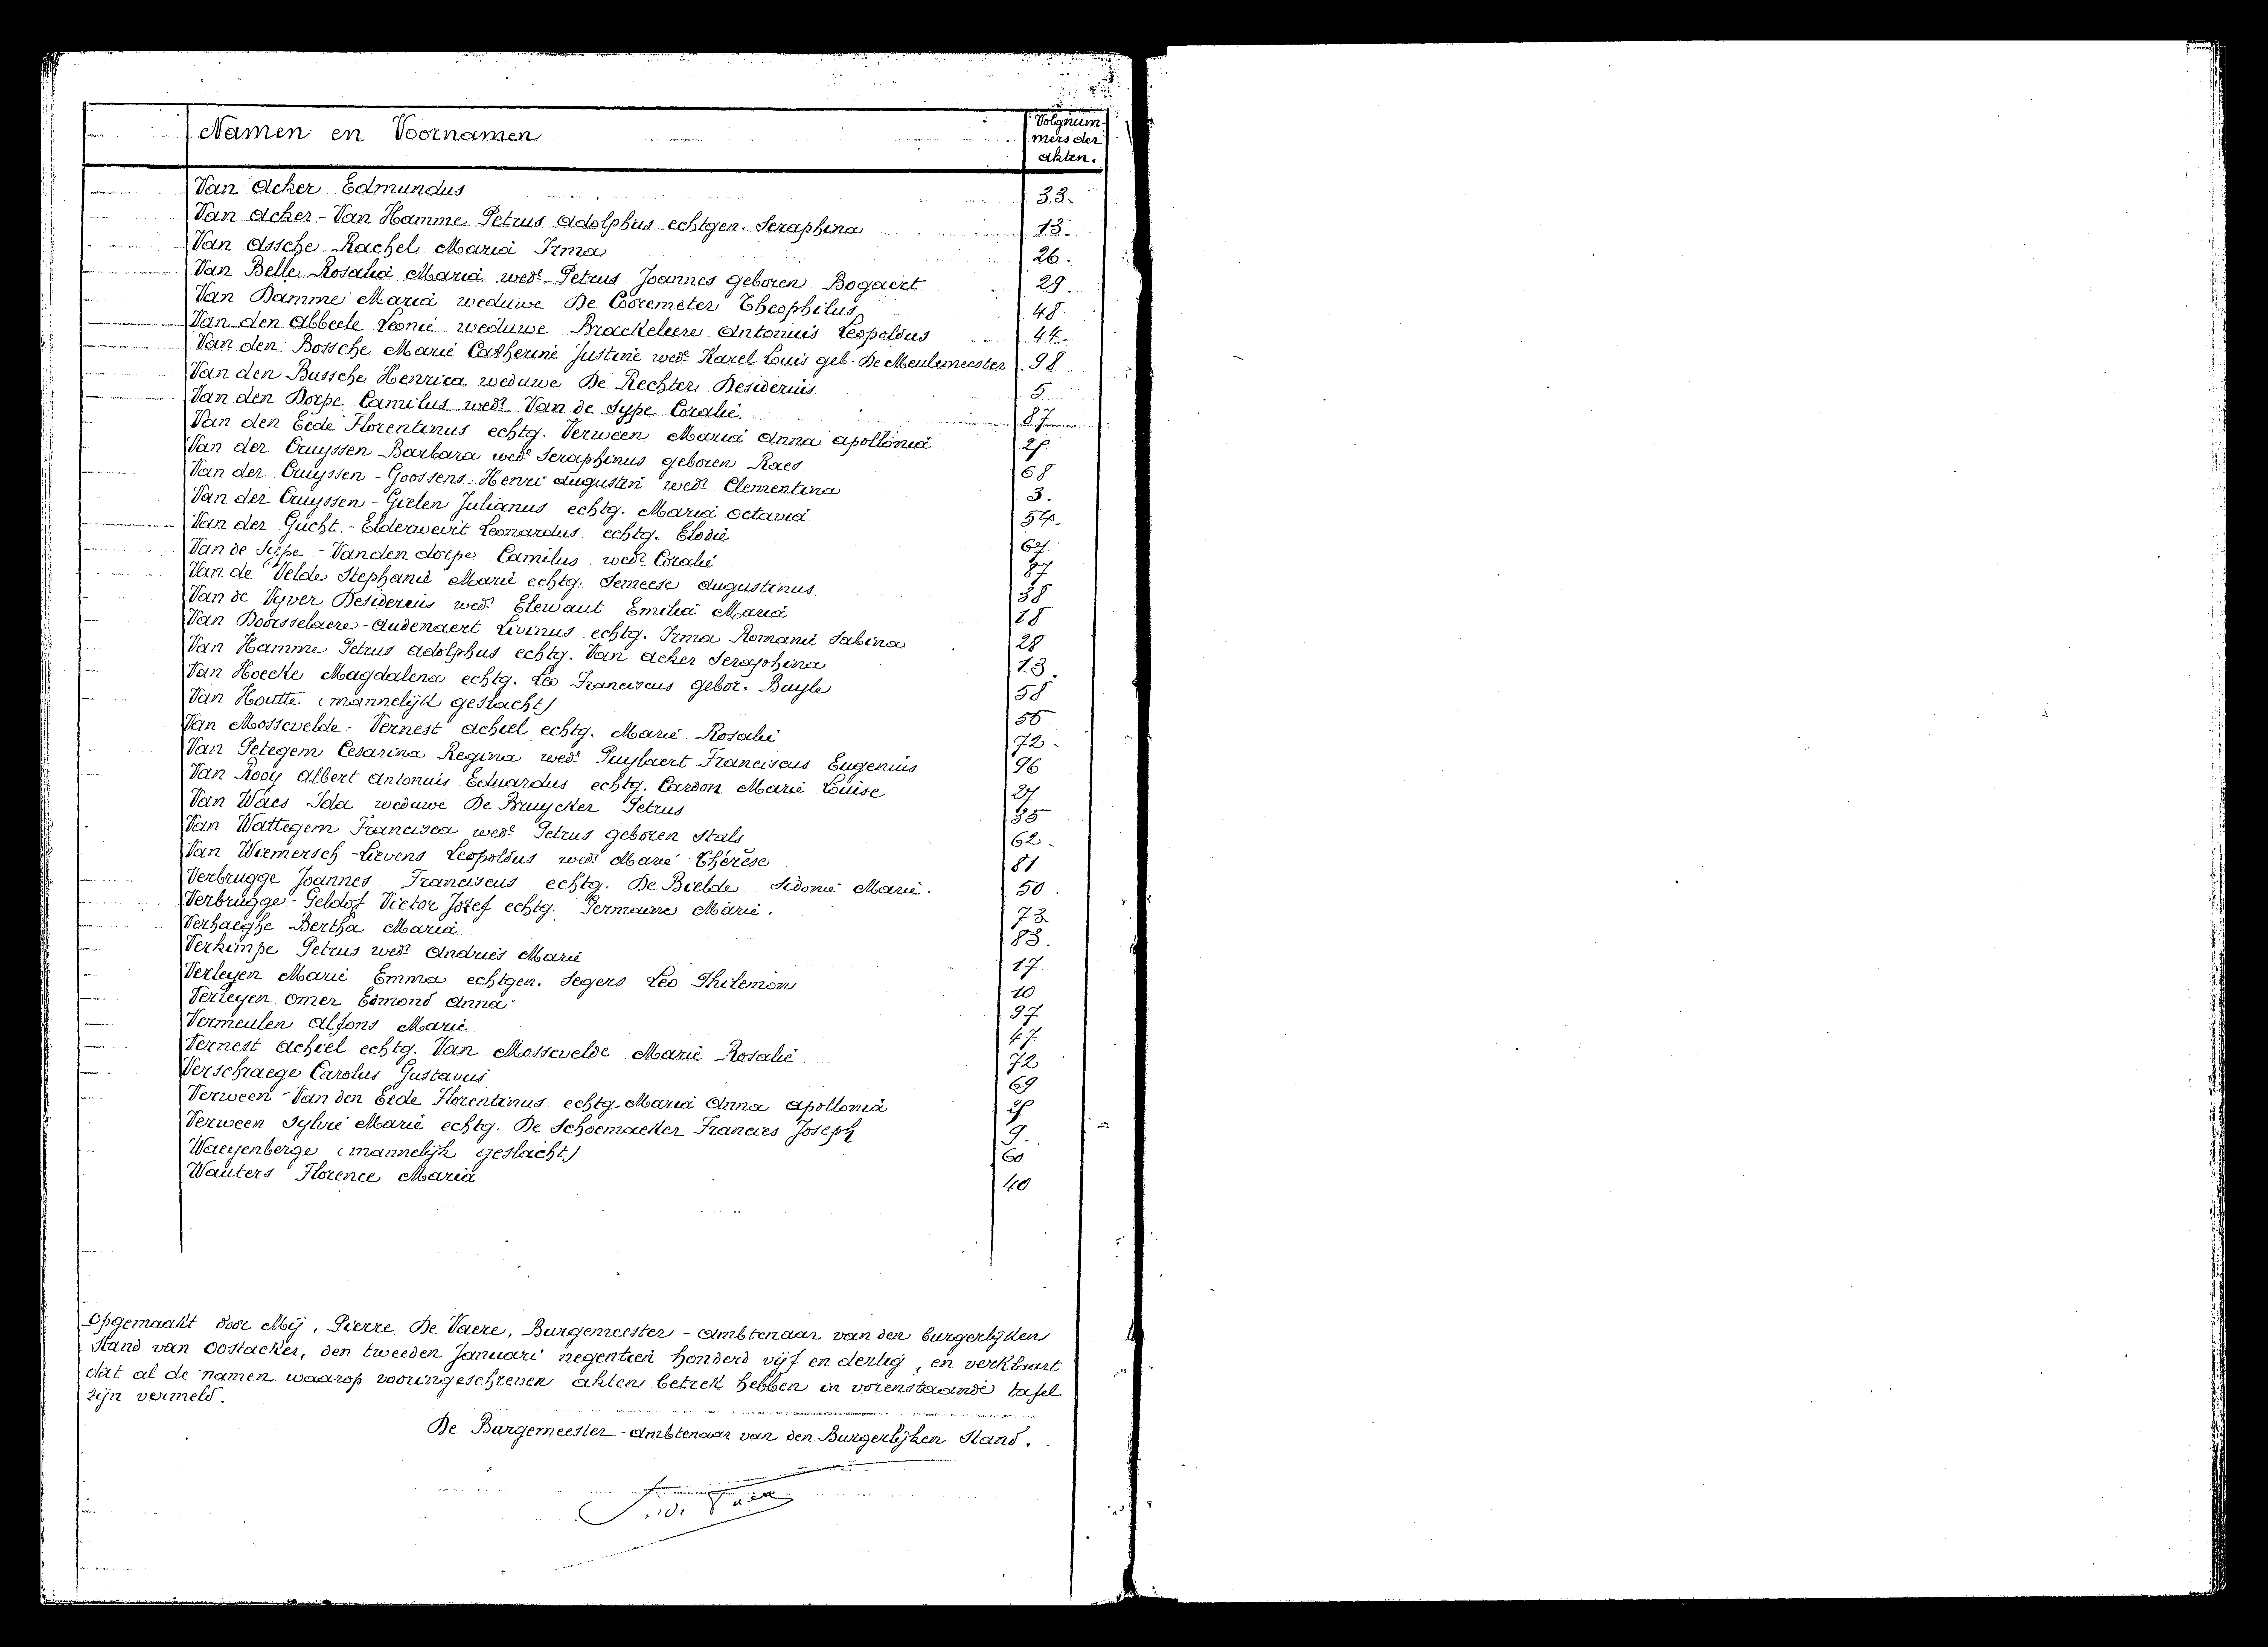 Namen en Voornamen
Volgnum-
mers der
akten.
Van Acker Edmundus 33.
Van Acker - Van Hamme Petrus Adolphus echtgen. Seraphina 13.
Van Assche Rachel Maria Irma 26.
Van Belle Rosalia Maria wede Petrus Joannes geboren Bogaert 29.
Van Damme Maria weduwe De Cooremeter Theophilus 48
Van den Abbeele Leonie weduwe Braeckeleere Antonius Leopoldus 44.
Van den Bossche Marie Catherine Justine wede Karel Louis geb. De Meulemeester 98
Van den Bussche Henrica weduwe De Rechter Desiderius 5
Van den Dorpe Camilus wedr Van de Sype Coralie 87
Van den Eede Florentinus echtg. Verween Maria Anna Apollonia
Van der Cruyssen Barbara wede Seraphinus geboren Raes 68
Van der Cruyssen - Goossens Henri Augustin wedr Clementina 3.
Van der Cruyssen - Gielen Julianus echtg. Maria Octavia 54.
Van der Gucht - Elderweirt Leonardus echtg. Elodie 67
Van de Sype - Vanden dorpe Camilus wedr Coralie 87
Van de Velde Stephanie Marie echtg. Semeese Augustinus 38
Van de Vyver Desiderius wedr Elewaut Emilia Maria 18
Van Doorsselaere - Audenaert Livinus echtg. Irma Romanie Sabina 28
Van Hamme Petrus Adolphus echtg. Van Acker Seraphina 13.
Van Hoecke Magdalena echtg. Leo Franciscus gebor. Buyle 58
Van Houtte (mannelijk geslacht) 55
Van Mossevelde - Vernest Achiel echtg. Marie Rosalie 72.
Van Petegem Cesarina Regina wede Puylaert Franciscus Eugenius 96
Van Rooy Albert Antonius Eduardus echtg. Cardon Marie Louise 27
Van Waes Ida weduwe De Bruycker Petrus 35
Van Wattegem Francisca wede Petrus geboren Stals 62.
Van Wiemersch - Lievens Leopoldus wedr Marie Thérèse 81
Verbrugge Joannes Franciscus echtg. De Bielde Sidonie Marie. 50.
Verbrugge - Geldof Victor Jozef echtg. Germaine Marie. 73
Verhaeghe Bertha Maria 83.
Verkimpe Petrus wedr Andries Marie 17
Verleyen Marie Emma echtgen. Segers Leo Philemon 10
Verleyen Omer Edmond Anna 97
Vermeulen Alfons Marie 47
Vernest Achiel echtg. Van Mossevelde Marie Rosalie 72
Verschraege Carolus Gustavus 69
Verween - Van den Eede Florentinus echtg. Maria Anna Apollonia
Verween Sylvie Marie echtg. De Schoemaeker Francies Joseph 9.
Waeyenberge (mannelijk geslacht) 60
Wauters Florence Maria 40
Opgemaakt door Mij, Pierre De Vaere, Burgemeester - Ambtenaar van den burgerlijken
Stand van Oostacker, den tweeden Januari negentien honderd vijf en dertig, en verklaart
dat al de namen waarop vooringeschreven akten betrek hebben in vorenstaande tafel
zijn vermeld.
De Burgemeester - Ambtenaar van den Burgerlijken Stand.
P. De Vaere